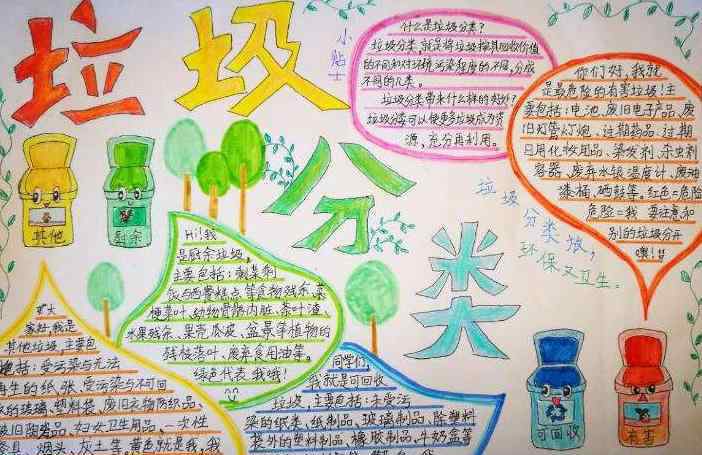 垃圾
分
类
小贴士
什么是垃圾分类?
垃圾分类,就是将垃圾按其回收价值
的不同和对环境污染程度的不同,分成
不同的几类。
垃圾分类带来什么样的好处?
垃圾分类可以使更多垃圾成为资
源,充分再利用。
你们好,我就
是最危险的有害垃圾!主
要包括:电池、废旧电子产品、废
旧灯管灯泡、过期药品、过期
日用化妆用品、染发剂、杀虫剂
容器、废弃水银温度计、废油
漆桶、硒鼓等。红色=危险
危险=我 要注意和
别的垃圾分开
噢!!
垃圾
分类
环保又卫生。
其他
厨余
Hi!我
是厨余垃圾,
主要包括:剩菜剩
饭与西餐糕点等食物残余、菜
梗菜叶、动物骨骼内脏、茶叶渣、
水果残余、果壳瓜皮、盆景等植物的
残枝落叶、废弃食用油等。
绿色代表我哦!
大
家好,我是
其他垃圾,主要包
括:受污染与无法
再生的纸张、受污染与不可回
的玻璃、塑料袋、废旧衣物防织品、
废旧陶瓷品、妇女卫生用品、一次性
餐具、烟头、灰土等。黄色就是我,我
同学们,
我就是可回收
垃圾,主要包括:未受污
染的纸类、纸制品、玻璃制品、除塑料
袋外的塑料制品、橡胶制品、牛奶盒等
可回收
有害